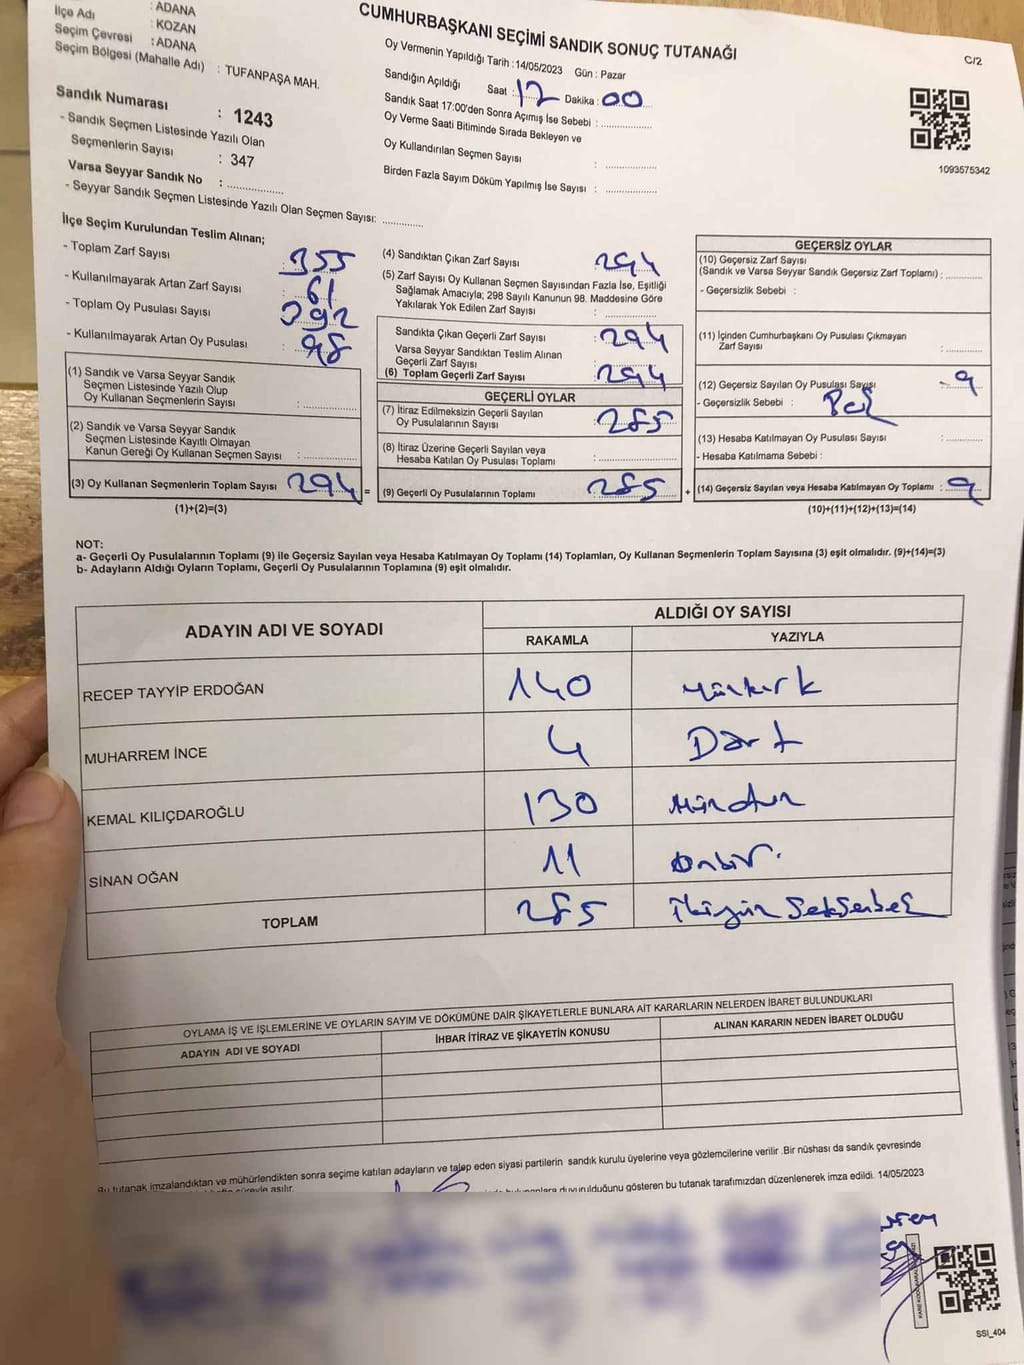 İlçe Adı : ADANA
Seçim Çevresi : KOZAN
Seçim Bölgesi (Mahalle Adı) : ADANA
: TUFANPAŞA MAH.
Sandık Numarası : 1243
- Sandık Seçmen Listesinde Yazılı Olan
Seçmenlerin Sayısı : 347
Varsa Seyyar Sandık No : ................
- Seyyar Sandık Seçmen Listesinde Yazılı Olan Seçmen Sayısı: ............
CUMHURBAŞKANI SEÇİMİ SANDIK SONUÇ TUTANAĞI
Oy Vermenin Yapıldığı Tarih :14/05/2023 Gün : Pazar
Sandığın Açıldığı Saat : 17 Dakika : 00
Sandık Saat 17:00'den Sonra Açımış İse Sebebi : ................
Oy Verme Saati Bitiminde Sırada Bekleyen ve
Oy Kullandırılan Seçmen Sayısı : ................
Birden Fazla Sayım Döküm Yapılmış İse Sayısı : ................
C/2
1093575342
İlçe Seçim Kurulundan Teslim Alınan;
- Toplam Zarf Sayısı : 355
- Kullanılmayarak Artan Zarf Sayısı : 61
- Toplam Oy Pusulası Sayısı : 392
- Kullanılmayarak Artan Oy Pusulası : 98
(1) Sandık ve Varsa Seyyar Sandık
Seçmen Listesinde Yazılı Olup
Oy Kullanan Seçmenlerin Sayısı : ................
(2) Sandık ve Varsa Seyyar Sandık
Seçmen Listesinde Kayıtlı Olmayan
Kanun Gereği Oy Kullanan Seçmen Sayısı : ................
(3) Oy Kullanan Seçmenlerin Toplam Sayısı 294 =
(1)+(2)=(3)
(4) Sandıktan Çıkan Zarf Sayısı : 294
(5) Zarf Sayısı Oy Kullanan Seçmen Sayısından Fazla İse, Eşitliği
Sağlamak Amacıyla; 298 Sayılı Kanunun 98. Maddesine Göre
Yakılarak Yok Edilen Zarf Sayısı : ................
Sandıkta Çıkan Geçerli Zarf Sayısı : 294
Varsa Seyyar Sandıktan Teslim Alınan
Geçerli Zarf Sayısı :
(6) Toplam Geçerli Zarf Sayısı : 294
GEÇERLİ OYLAR
(7) İtiraz Edilmeksizin Geçerli Sayılan
Oy Pusulalarının Sayısı : 285
(8) İtiraz Üzerine Geçerli Sayılan veya
Hesaba Katılan Oy Pusulası Toplamı : ................
(9) Geçerli Oy Pusulalarının Toplamı : 285 +
GEÇERSİZ OYLAR
(10) Geçersiz Zarf Sayısı
(Sandık ve Varsa Seyyar Sandık Geçersiz Zarf Toplamı) : ............
- Geçersizlik Sebebi :
(11) İçinden Cumhurbaşkanı Oy Pusulası Çıkmayan
Zarf Sayısı : ............
(12) Geçersiz Sayılan Oy Pusulası Sayısı : 9
- Geçersizlik Sebebi :
(13) Hesaba Katılmayan Oy Pusulası Sayısı : ............
- Hesaba Katılmama Sebebi :
(14) Geçersiz Sayılan veya Hesaba Katılmayan Oy Toplamı : 9
(10)+(11)+(12)+(13)=(14)
NOT:
a- Geçerli Oy Pusulalarının Toplamı (9) ile Geçersiz Sayılan veya Hesaba Katılmayan Oy Toplamı (14) Toplamları, Oy Kullanan Seçmenlerin Toplam Sayısına (3) eşit olmalıdır. (9)+(14)=(3)
b- Adayların Aldığı Oyların Toplamı, Geçerli Oy Pusulalarının Toplamına (9) eşit olmalıdır.
ADAYIN ADI VE SOYADI ALDIĞI OY SAYISI
RAKAMLA YAZIYLA
RECEP TAYYİP ERDOĞAN 140 Yüzkırk
MUHARREM İNCE 4 Dört
KEMAL KILIÇDAROĞLU 130 Yüzotuz
SİNAN OĞAN 11 Onbir.
TOPLAM 285 İkiyüz Seksenbeş
OYLAMA İŞ VE İŞLEMLERİNE VE OYLARIN SAYIM VE DÖKÜMÜNE DAİR ŞİKAYETLERLE BUNLARA AİT KARARLARIN NELERDEN İBARET BULUNDUKLARI
ADAYIN ADI VE SOYADI İHBAR İTİRAZ VE ŞİKAYETİN KONUSU ALINAN KARARIN NEDEN İBARET OLDUĞU
Bu tutanak imzalandıktan ve mühürlendikten sonra seçime katılan adayların ve talep eden siyasi partilerin sandık kurulu üyelerine veya gözlemcilerine verilir .Bir nüshası da sandık çevresinde
süreyle asılır. duyurulduğunu gösteren bu tutanak tarafımızdan düzenlenerek imza edildi. 14/05/2023
SSI_404